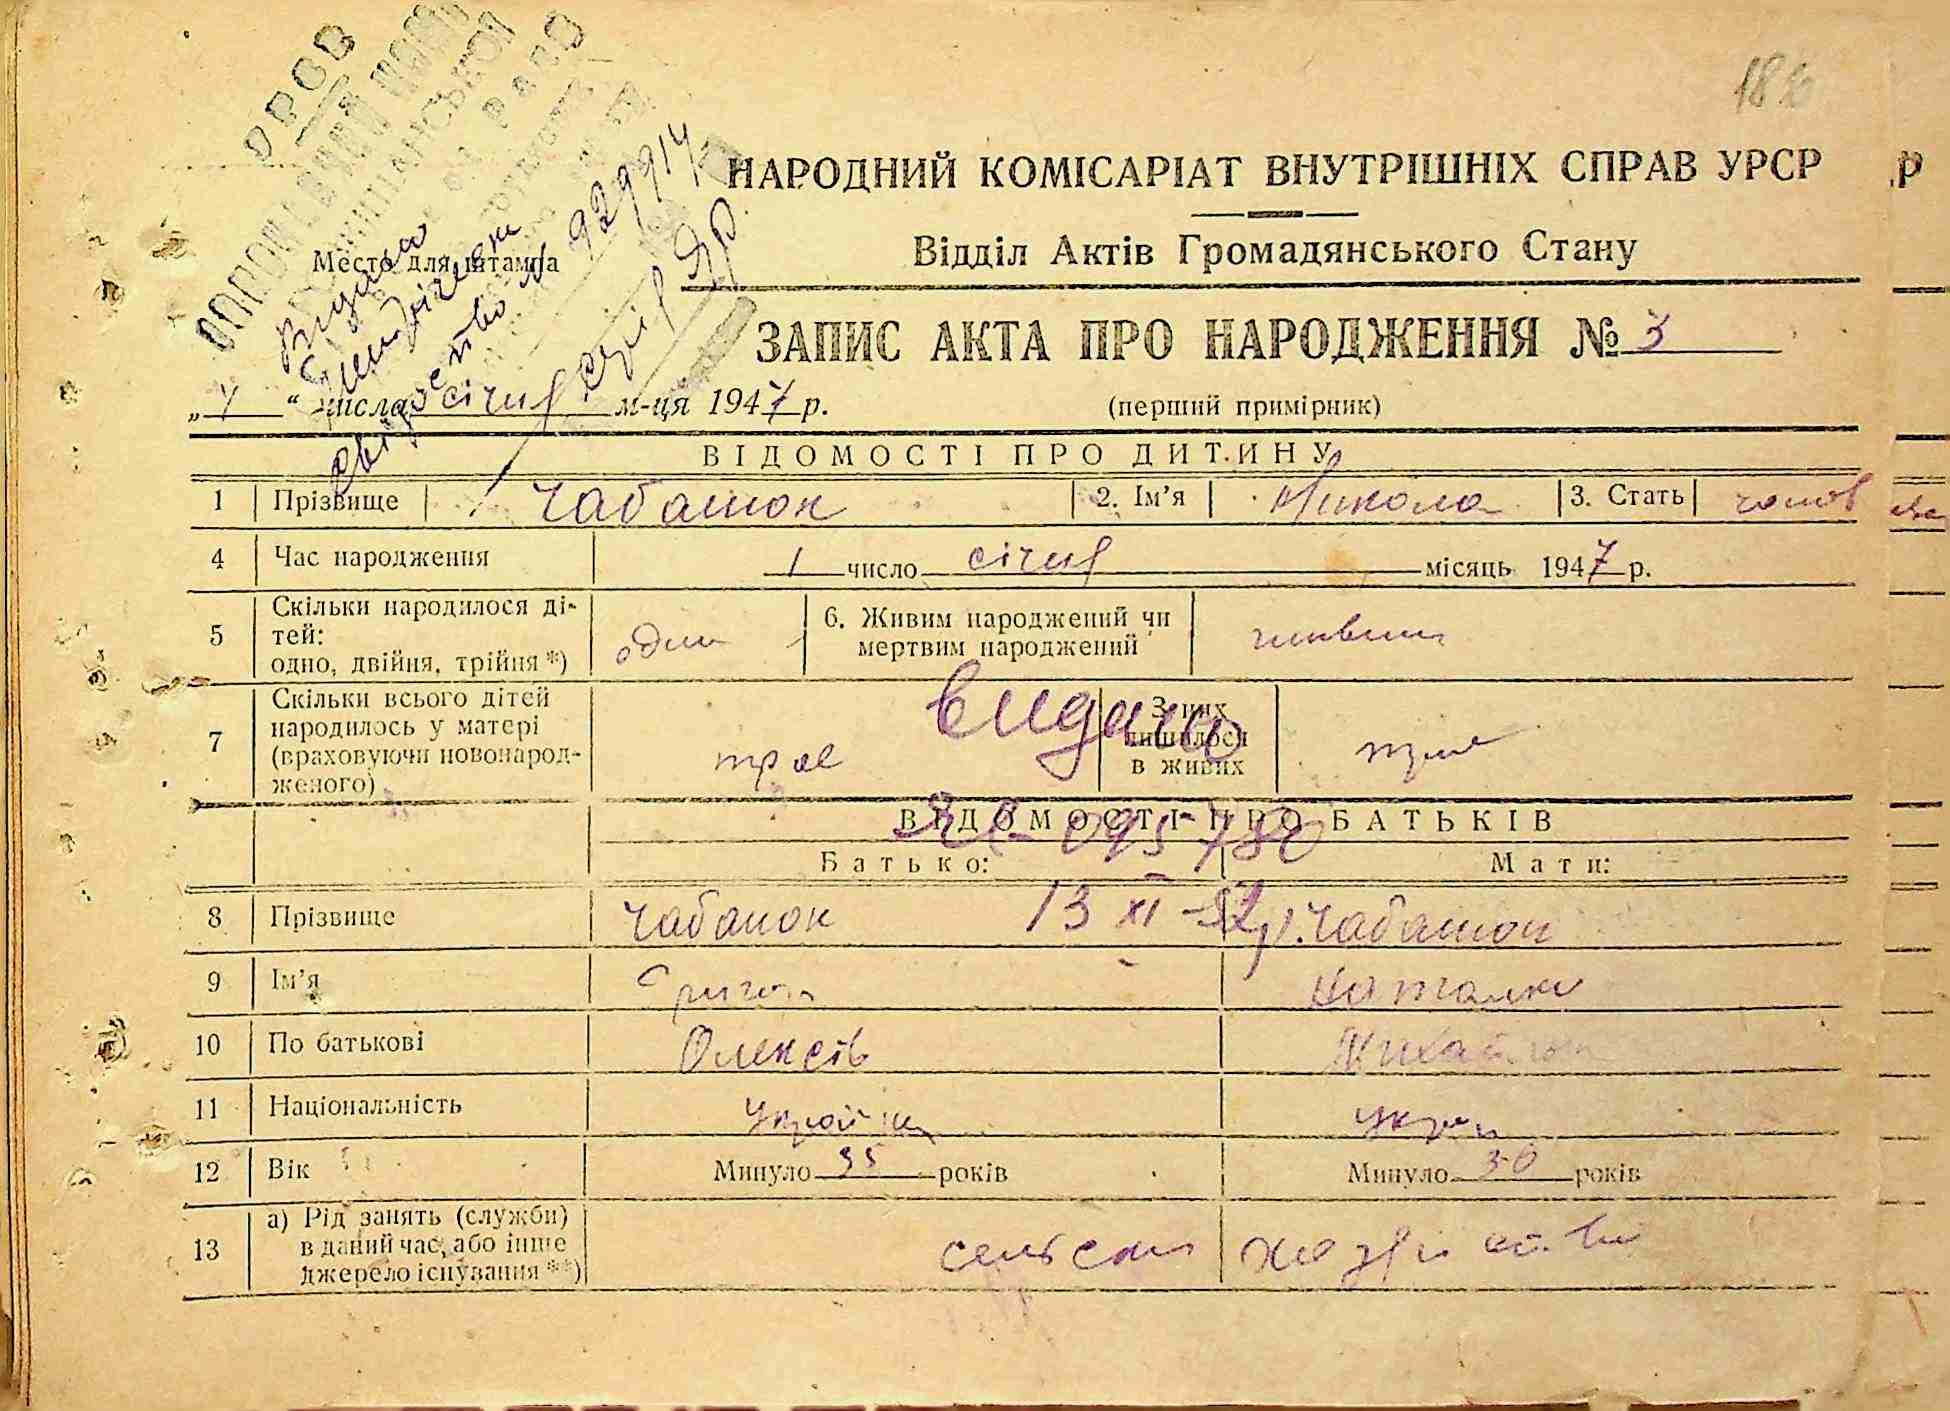 НАРОДНИЙ КОМІСАРІАТ ВНУТРІШНІХ СПРАВ УРСР
Відділ Актів Громадянського Стану
Место для штампа
свідоство № 929914
ЗАПИС АКТА ПРО НАРОДЖЕННЯ № 3
(перший примірник)
„ “ числа січня м-ця 1947 р.
ВІДОМОСТІ ПРО ДИТИНУ
1 Прізвище Чабанюк 2. Ім’я Микола 3. Стать чолов
4 Час народження 1 число січня місяць 1947 р.
5 Скільки народилося ді-
тей:
одно, двійня, трійня*) один
6. Живим народжений чи
мертвим народжений живим
7 Скільки всього дітей
народилось у матері
(враховуючи новонарод-
женого) троє
З них
лишилося
в живих троє
видано
095780
13 XI - 52 р.
ВІДОМОСТІ ПРО БАТЬКІВ
Батько: Мати:
8 Прізвище Чабанюк Чабанюк
9 Ім’я Григор Наталка
10 По батькові Олексів Михайлів
11 Національність
12 Вік Минуло 35 років Минуло 30 років
13 а) Рід занять (служби)
в даний час, або інше
джерело існування**)